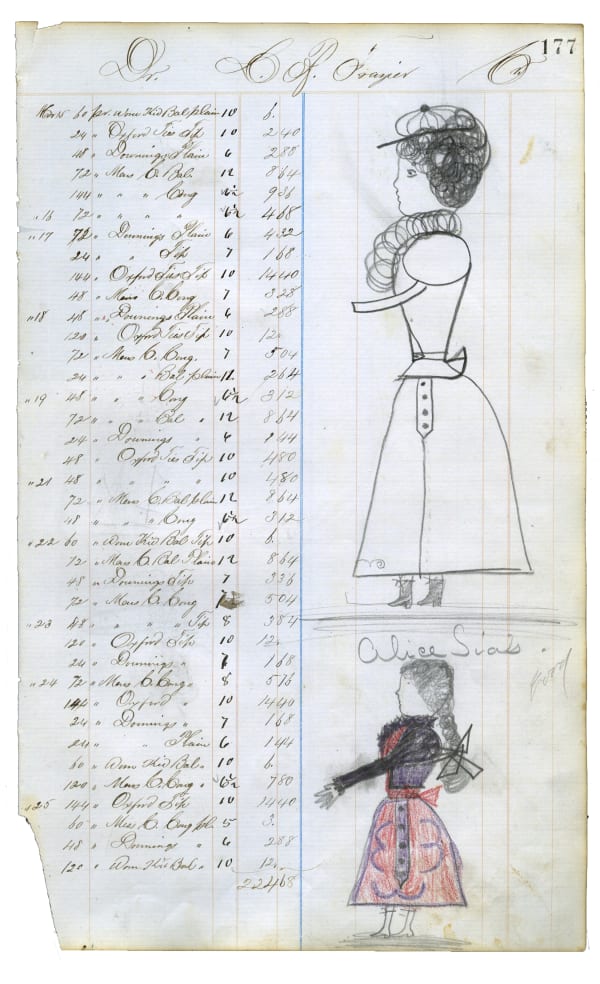 177
Dr. C. P. Frazier Cr
Mar 15 60 pr. Wom Kid Bal plain 10 6.
24 " Oxford Ties Tip 10 2 40
48 " Downings Plain 6 2 88
72 " Mens C. Bal. 12 8 64
144 " " " Cong 6½ 9 36
" 16 72 " " " " 6½ 4 68
" 17 72 " Downings Plain 6 4 32
24 " " Tip 7 1 68
144 " Oxford Ties Tip 10 14 40
48 " Mens C. Cong 7 3 28
" 18 48 " Downings Plain 6 2 88
120 " Oxford Ties Tip 10 12.
72 " Mens C. Cong. 7 5 04
24 " " " Bal plain 11 2 64
" 19 48 " " " Cong 6½ 3 12
72 " " " Bal " 12 8 64
24 " Downings " 6 1 44
48 " Oxford Ties Tip 10 4 80
" 21 48 " " " " 10 4 80
72 " Mens C. Bal plain 12 8 64
48 " " " Cong 6½ 3 12
" 22 60 " Wom Kid Bal Tip 10 6.
72 " Mens C. Bal Plain 12 8 64
48 " Downings Tip 7 3 36
72 " Mens C. Cong 5 04
" 23 48 " " " " Tip 8 3 84
120 " Oxford Tip 10 12.
24 " Downings " 7 1 68
" 24 72 " Mens C. Cong " 8 5 76
144 " Oxford " 10 14 40
24 " Downings " 7 1 68
24 " " Plain 6 1 44
60 " Wom Kid Bal " 10 6.
120 " Mens C. Cong " 6½ 7 80
" 25 144 " Oxford Tip 10 14 40
60 " Mens C. Cong pl. 5 3.
48 " Downings " 6 2 88
120 " Wom Kid Bal " 10 12.
224 68
Alice Sias.